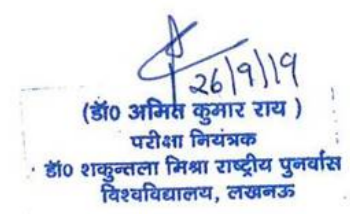 26/9/19
(डॉ0 अमित कुमार राय )
परीक्षा नियंत्रक
डॉ0 शकुन्तला मिश्रा राष्ट्रीय पुनर्वास
विश्वविद्यालय, लखनऊ